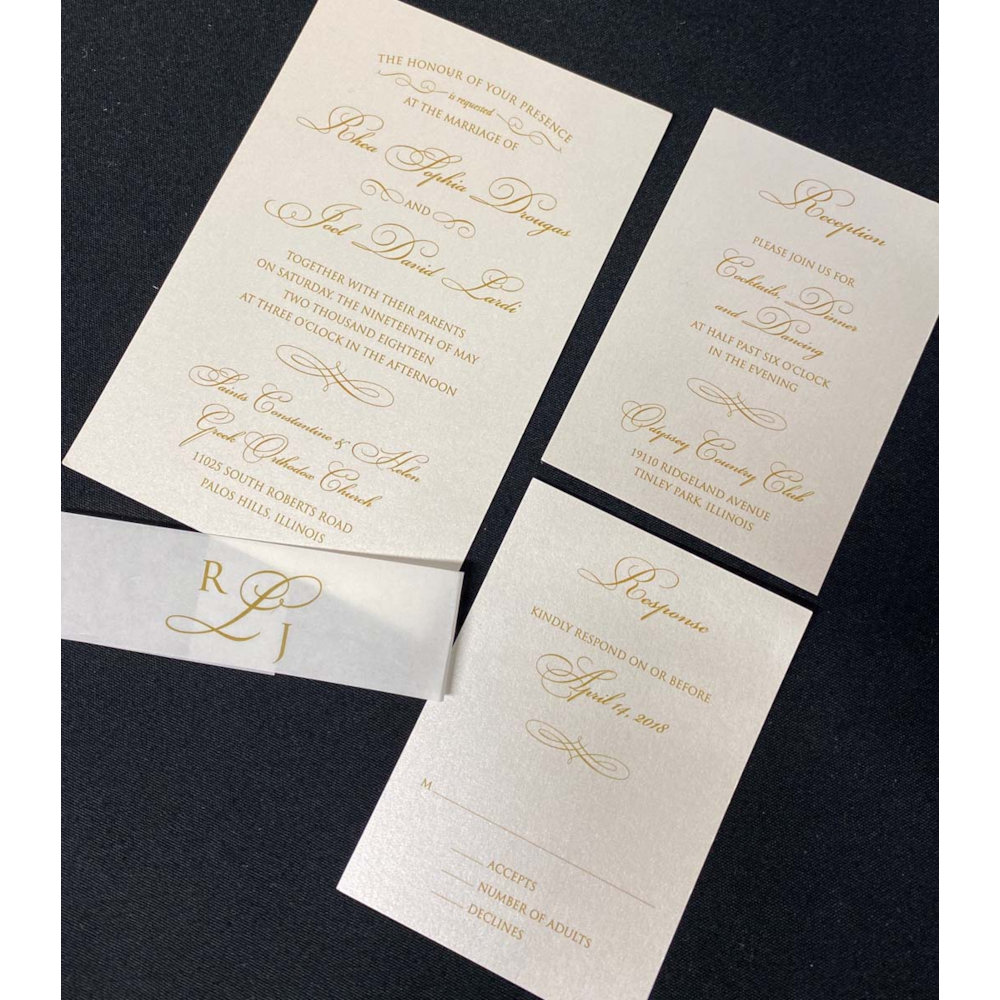 THE HONOUR OF YOUR PRESENCE
is requested
AT THE MARRIAGE OF
Rhea Sophia Drougas
AND
Joel David Lardi
TOGETHER WITH THEIR PARENTS
ON SATURDAY, THE NINETEENTH OF MAY
TWO THOUSAND EIGHTEEN
AT THREE O'CLOCK IN THE AFTERNOON
Saints Constantine & Helen
Greek Orthodox Church
11025 SOUTH ROBERTS ROAD
PALOS HILLS, ILLINOIS
R L J
Reception
PLEASE JOIN US FOR
Cocktails, Dinner
and Dancing
AT HALF PAST SIX O'CLOCK
IN THE EVENING
Odyssey Country Club
19110 RIDGELAND AVENUE
TINLEY PARK, ILLINOIS
Response
KINDLY RESPOND ON OR BEFORE
April 14, 2018
M
ACCEPTS
NUMBER OF ADULTS
DECLINES